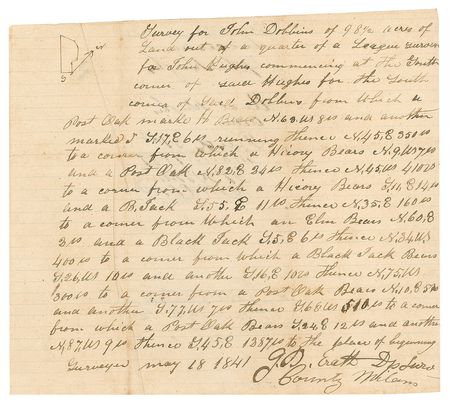 Survey for John Dobbins of 98¾ acres of
Land out of a quarter of a League survey
for John Hughes commencing at the South
corner of said Hughes for the South
corner of said Dobbins from which a
Post Oak marke H Bears N.63.W 8 vs and another
marked J S.17,E 6 vs running thence N,45,E 350 vs
to a corner from which a Hicory Bears N.9,W 7 vs
and a Post Oak N,82,E 24 vs thence N,45,W 410 vs
to a corner from which a Hicory Bears S,11,E 14 vs
and a B. Jack S.55.E 11 vs thence N.35,E 160 vs
to a corner from which an Elm Bears N,60,E
3 vs and a Black Jack S,5,E 6 vs thence N.34,W
400 vs to a corner from which a Black Jack Bears
S,26,W 10 vs and another S16,E 10 vs thence N,75,W
300 vs to a corner from a Post Oak Bears N,10,E 5 vs
and another S,77,W 7 vs thence S,68,W 510 vs to a corner
from which a Post Oak Bears S.24,E 12 vs and another
N,87,W 9 vs thence S,45,E 1387 vs to the place of beginning
Surveyed may 18 1841 G.B. Erath Dp Survr
County Milam
S